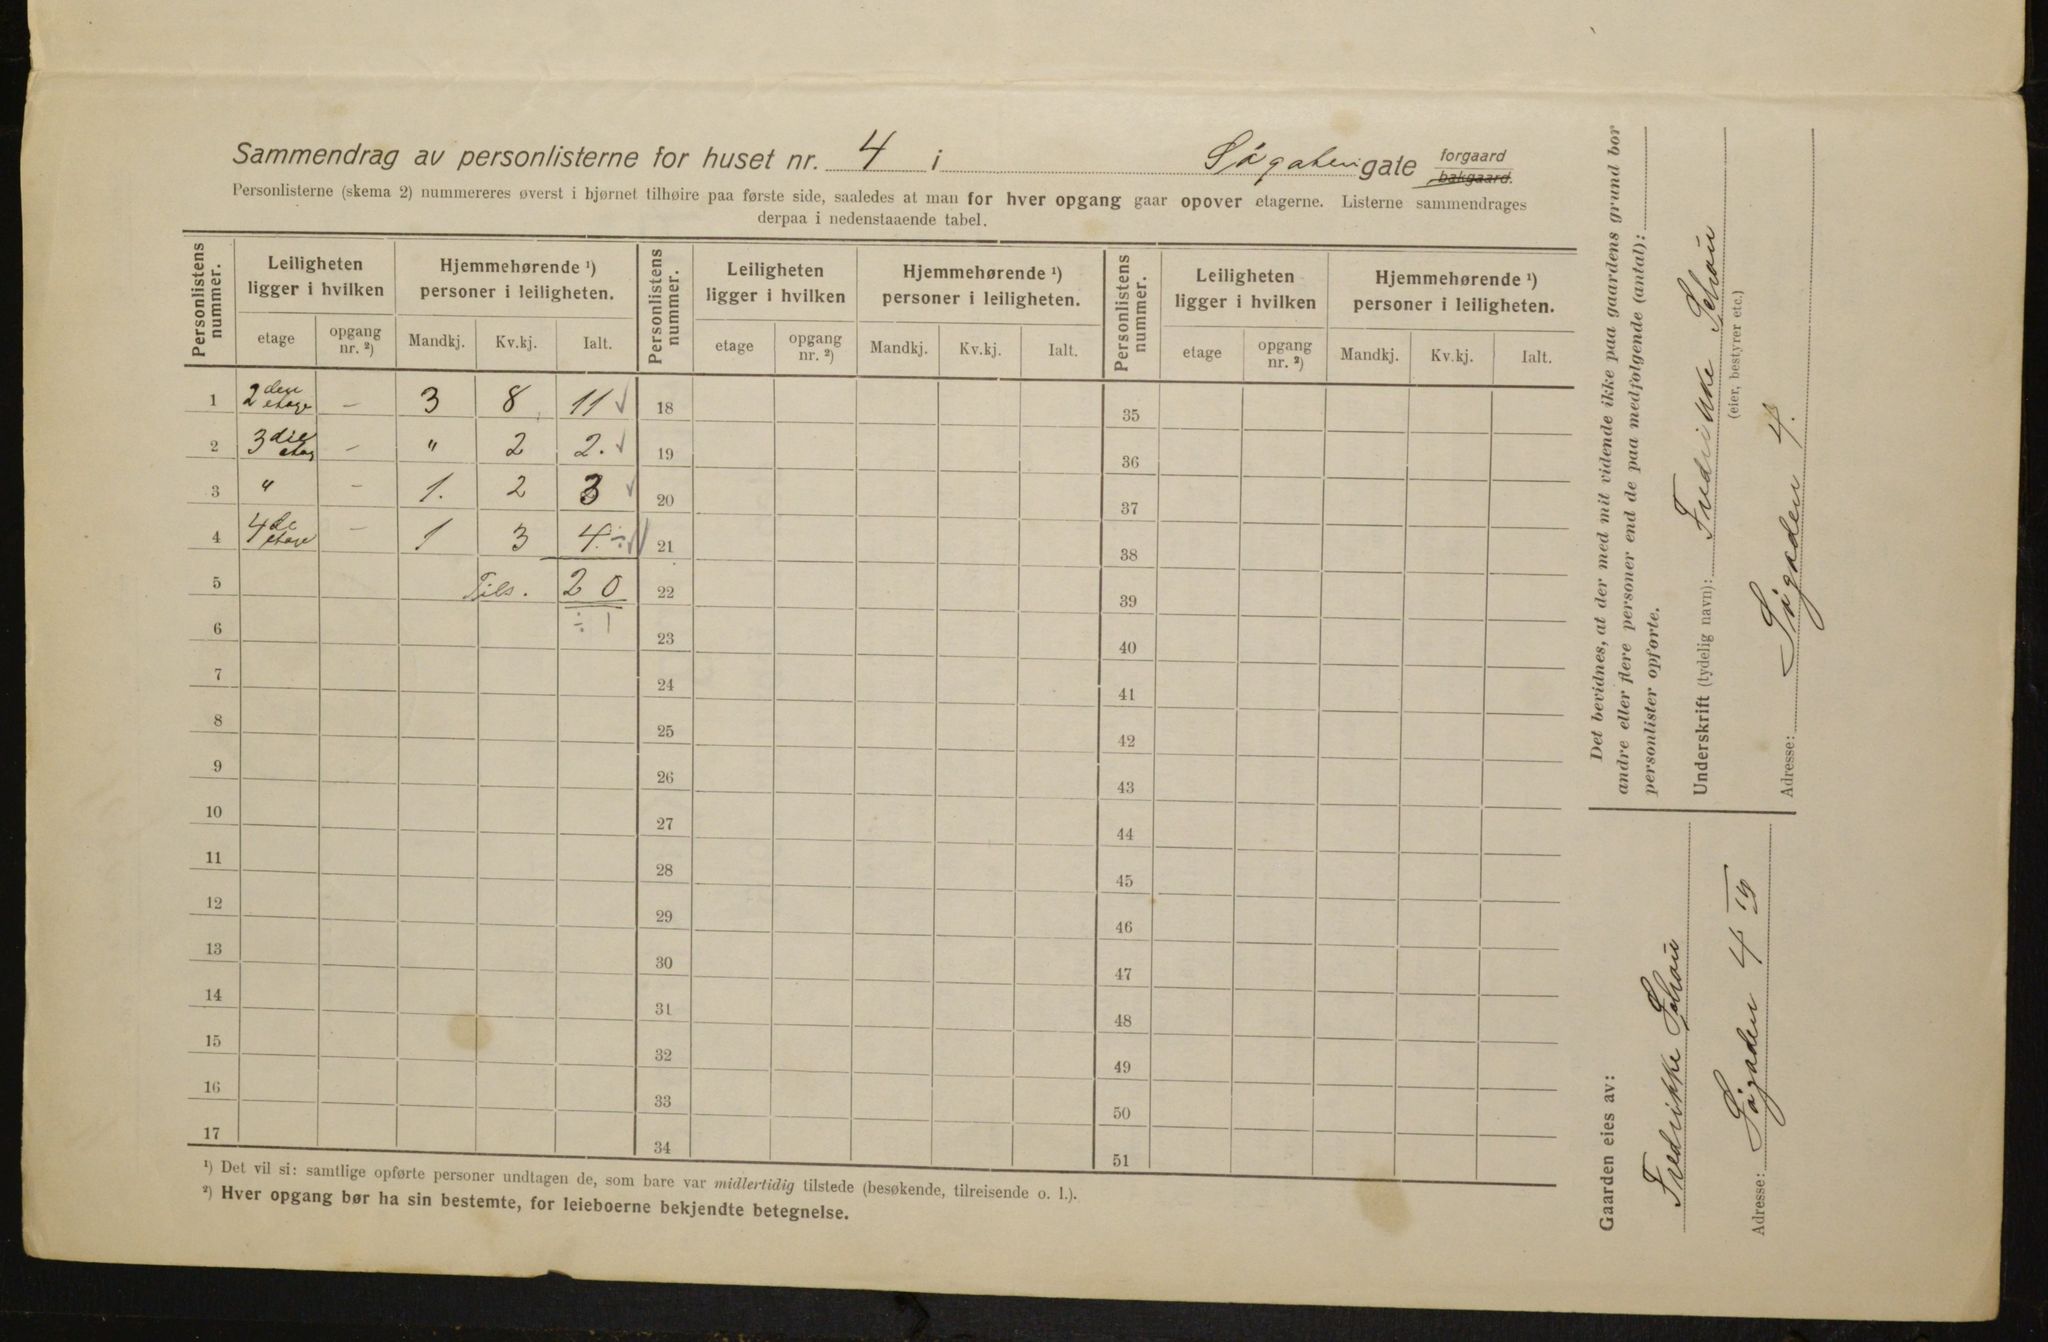 Sammendrag av personlisterne for huset nr. 4 i Søgaten gate forgaard bakgaard.
Personlisterne (skema 2) nummereres øverst i hjørnet tilhøire paa første side, saaledes at man for hver opgang gaar opover etagerne. Listerne sammendrages
derpaa i nedenstaaende tabel.
Personlistens nummer. Leiligheten ligger i hvilken Hjemmehørende ¹) personer i leiligheten. Personlistens nummer. Leiligheten ligger i hvilken Hjemmehørende ¹) personer i leiligheten. Personlistens nummer. Leiligheten ligger i hvilken Hjemmehørende ¹) personer i leiligheten.
etage opgang nr. ²) Mandkj. Kv.kj. Ialt. etage opgang nr. ²) Mandkj. Kv.kj. Ialt. etage opgang nr. ²) Mandkj. Kv.kj. Ialt.
1 2den etage – 3 8 11 ✓ 18 35
2 3die etag – " 2 2. ✓ 19 36
3 " – 1. 2 3 ✓ 20 37
4 4de etage – 1 3 4. ÷ ✓ 21 38
5 Tils. 20 22 39
6 ÷ 1 23 40
7 24 41
8 25 42
9 26 43
10 27 44
11 28 45
12 29 46
13 30 47
14 31 48
15 32 49
16 33 50
17 34 51
¹) Det vil si: samtlige opførte personer undtagen de, som bare var midlertidig tilstede (besøkende, tilreisende o. l.).
²) Hver opgang bør ha sin bestemte, for leieboerne bekjendte betegnelse.
Det bevidnes, at der med mit vidende ikke paa gaardens grund bor
andre eller flere personer end de paa medfølgende (antal):
personlister opførte.
Underskrift (tydelig navn): Fredrikke Schou
(eier, bestyrer etc.)
Adresse: Søgaden 4.
Gaarden eies av:
Fredrikke Schou
Adresse: Søgaden 4 IV